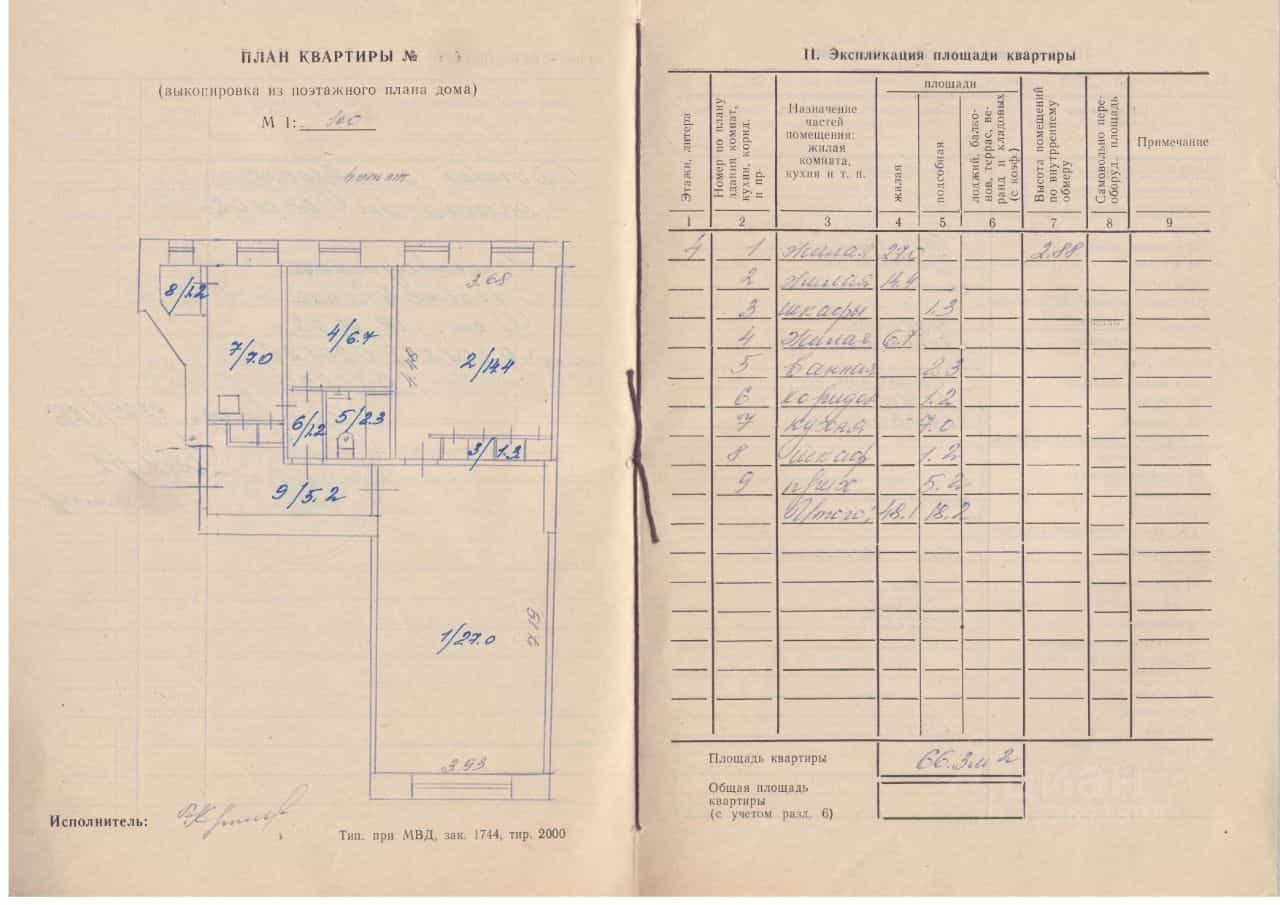 ПЛАН КВАРТИРЫ №
(выкопировка из поэтажного плана дома)
М 1: 100
3.68
8/1.2
4/6.7
7/7.0
4.48
2/14.4
6/1.2
5/2.3
3/1.3
9/5.2
1/27.0
7.19
3.93
Исполнитель:
Тип. при МВД, зак. 1744, тир. 2000
II. Экспликация площади квартиры
Этажи, литера
Номер по плану здания комнат, кухни, корид. и пр.
Назначение частей помещения: жилая комната, кухни и т. п.
площади
жилая
подсобная
лоджий, балконов, террас, веранд и кладовых (с коэф.)
Высота помещений по внутрреннему обмеру
Самовольно переоборуд. площадь
Примечание
1 2 3 4 5 6 7 8 9
4 1 жилая 27.0 2.88
2 жилая 14.4
3 шкафы 1.3
4 жилая 6.7
5 ванная 2.3
6 коридор 1.2
7 кухня 7.0
8 шкаф 1.2
9 прих 5.2
Итого: 48.1 18.2
Площадь квартиры 66.3м2
Общая площадь
квартиры
(с учетом разд. 6)